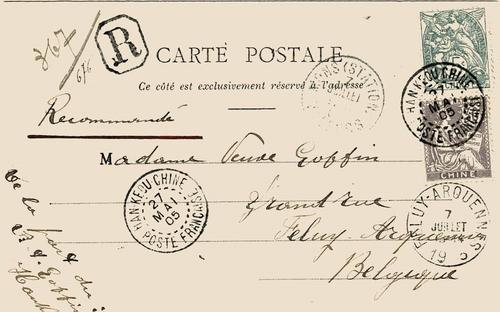 367
R
CARTE POSTALE
Ce côté est exclusivement réservé à l'adresse
Recommandé
Madame Veuve Goffin
Grand'rue
Feluy-Arquennes
Belgique
HAN-KEOU CHINE
27
MAI
05
POSTE FRANÇAISE
HAN-KEOU CHINE
27
MAI
05
POSTE FRANÇAISE
CHINE
(STATION)
7
JUILLET
FELUY-ARQUENNES
7
JUILLET
19 5
De la part de